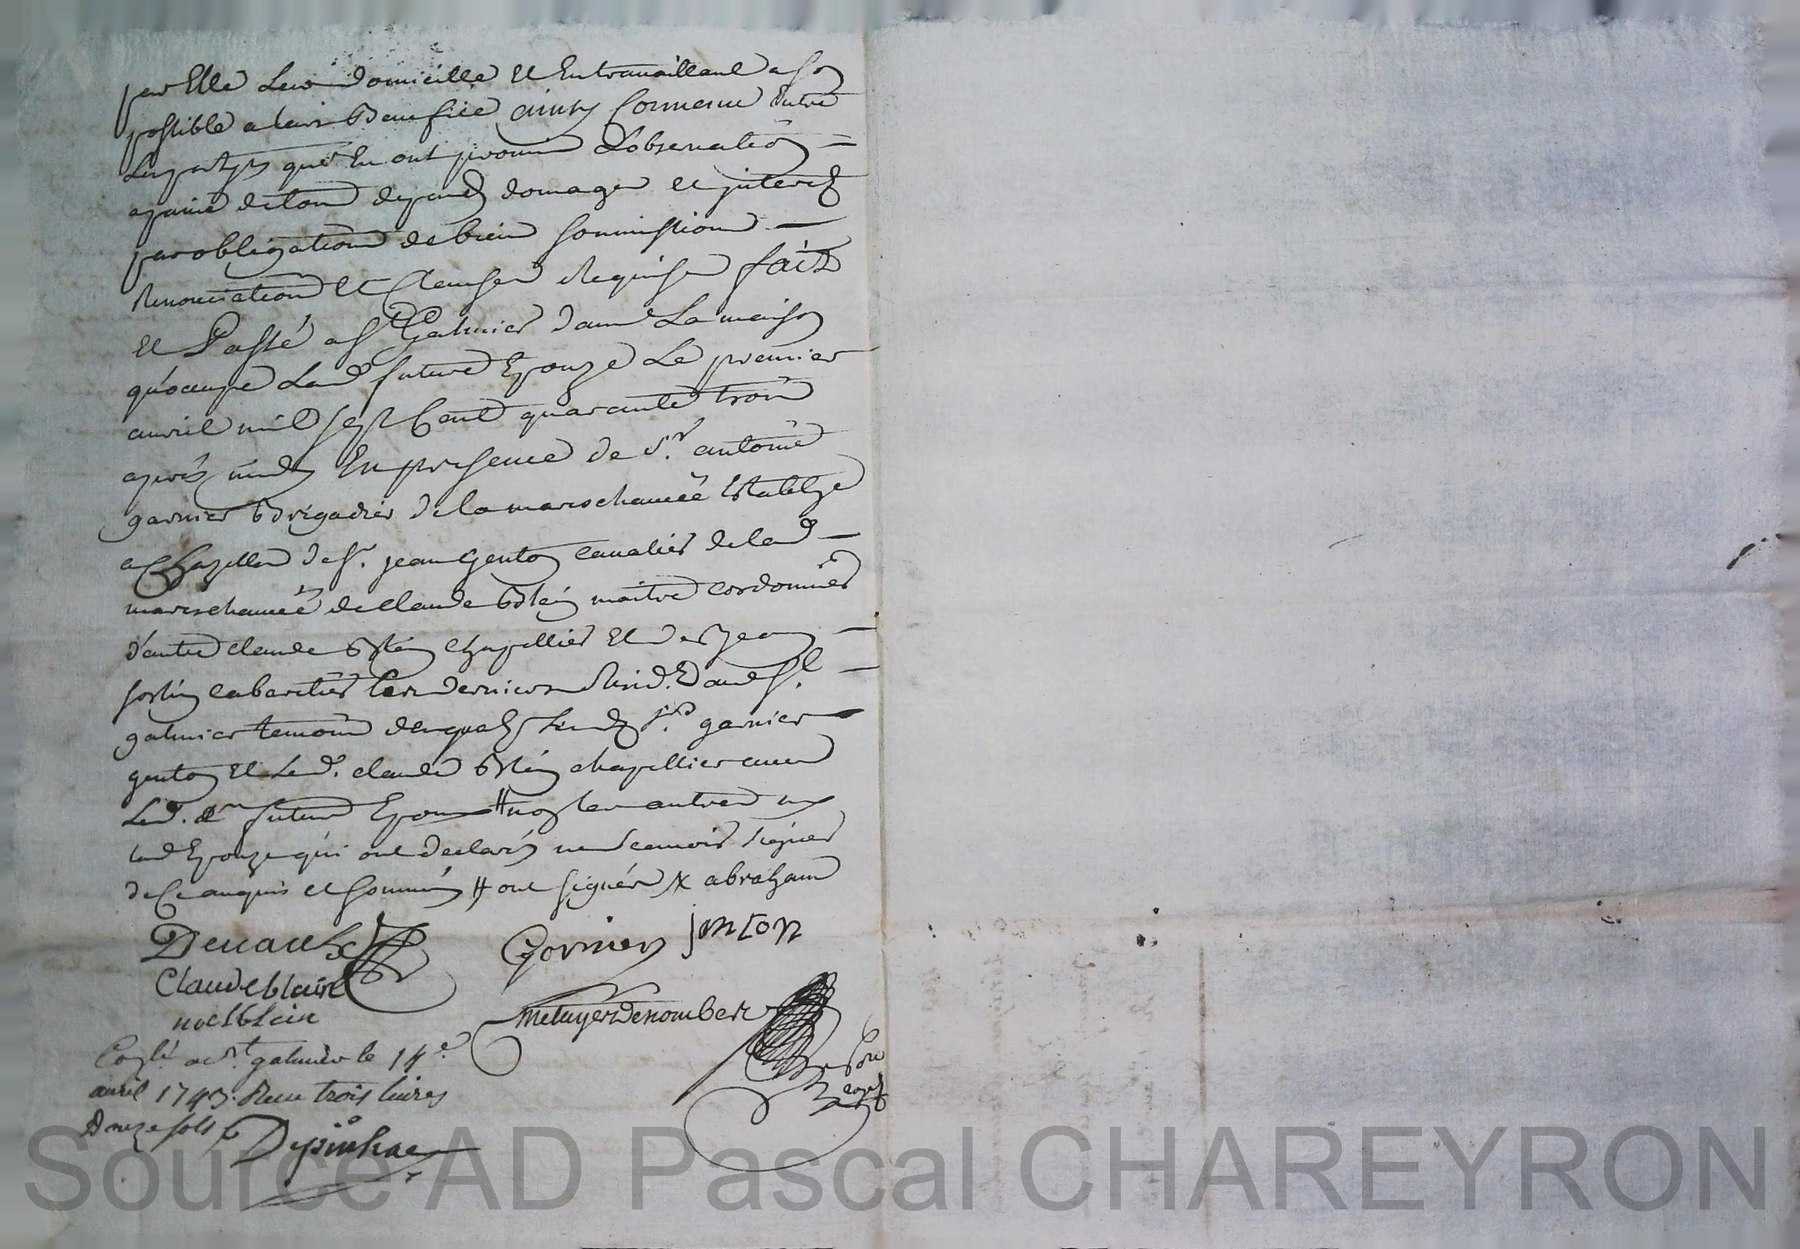 par Elle Leur domicille Et En travaillant a son
possible a leur Benefice ainsy Convenu Entre
Les partyes qui En ont promis Lobservation
a peine de tous depends domages et interets
par obligation de biens soumission
Renonciation Et Clauses Requises fait
Et Passé a St Galmier dans La maison
qu'ocupe Lad. future Epouze Le premier
avril mil sept Cent quarante trois
aprés midy En presence de Sr. antoine
garnier Brigadier de la mareschaucée Establye
a Chazelles de Sr. jean Genton cavalier de lad.
mareschaucée de claude Blein maitre cordonnier
d'autre claude Blein chapellier Et de jean
cabaretier Les derniers Resid. aud. St.
galmier temoins desquels Lesd. Srs. garnier
genton Et Led. claude Blein chapellier avec
Led. Sr. futur Epoux # non les autres ny
lad Epouze qui ont declarés ne scavoir signer
de Ce enquis et sommés # ont signés X abraham
Denave
Garnier jenton
Claude blein
noel blein
metuyer Denomber
Conlé. a St. galmier le 14e.
avril 1743. Recu trois livres
Douze sols
Despinhac